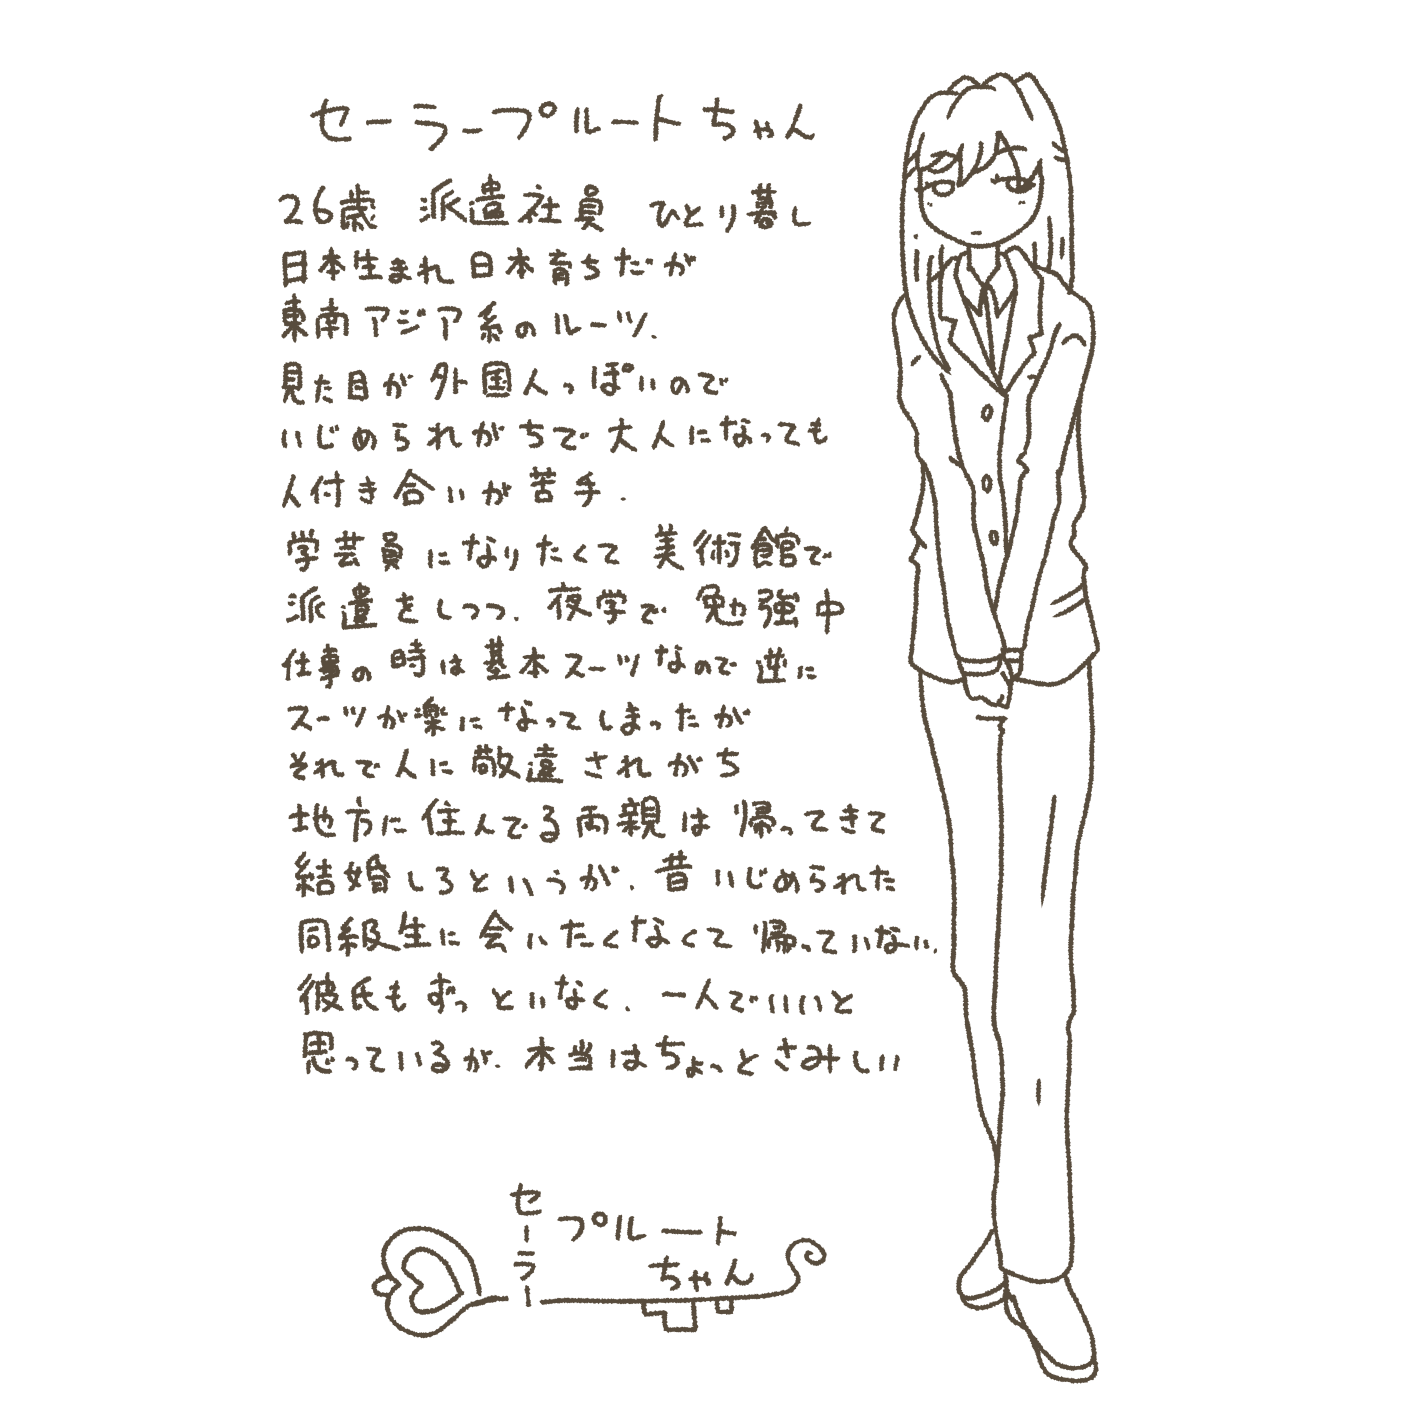 セーラープルートちゃん
26歳 派遣社員 ひとり暮し
日本生まれ日本育ちだが
東南アジア系のルーツ.
見た目が外国人っぽいので
いじめられがちで大人になっても
人付き合いが苦手.
学芸員になりたくて美術館で
派遣をしつつ.夜学で勉強中
仕事の時は基本スーツなので逆に
スーツが楽になってしまったが
それで人に敬遠されがち
地方に住んでる両親は帰ってきて
結婚しろというが.昔いじめられた
同級生に会いたくなくて帰っていない.
彼氏もずっといなく.一人でいいと
思っているが.本当はちょっとさみしい
セーラー
プルート
ちゃん